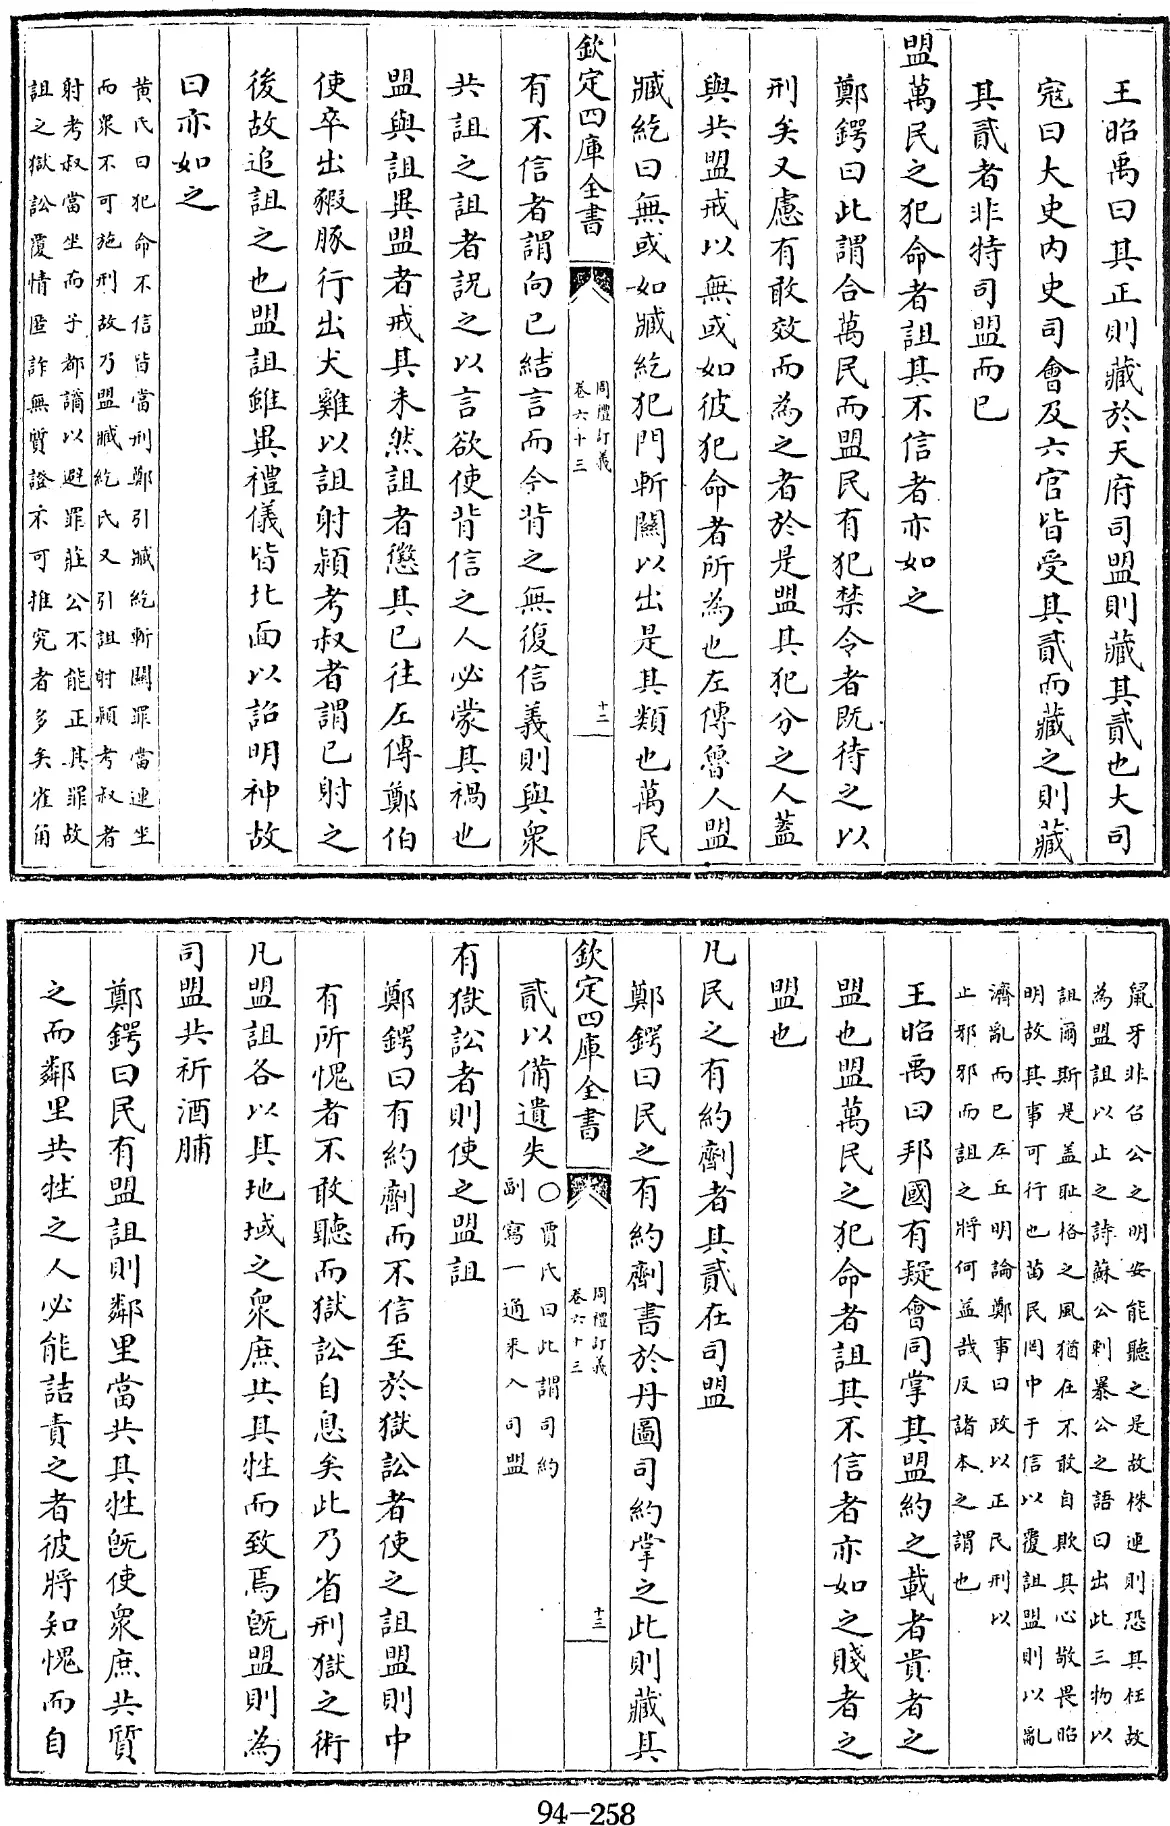 王昭禹曰其正則藏於天府司盟則藏其貳也大司
寇曰大史内史司會及六官皆受其貳而藏之則藏
其貳者非特司盟而已
盟萬民之犯命者詛其不信者亦如之
鄭鍔曰此謂合萬民而盟民有犯禁令者既待之以
刑矣又慮有敢效而為之者於是盟其犯分之人蓋
與共盟戒以無或如彼犯命者所為也左傳魯人盟
臧紇曰無或如臧紇犯門斬關以出是其類也萬民
欽定四庫全書
周禮訂義
卷六十三
十二
有不信者謂向已結言而今背之無復信義則與衆
共詛之詛者説之以言欲使背信之人必蒙其禍也
盟與詛異盟者戒其未然詛者懲其已往左傳鄭伯
使卒出豭豚行出犬雞以詛射潁考叔者謂已射之
後故追詛之也盟詛雖異禮儀皆北面以詔明神故
曰亦如之
黄氏曰犯命不信皆當刑鄭引臧紇斬關罪當連坐
而衆不可施刑故乃盟臧紇氏又引詛射潁考叔者
射考叔當坐而子都譎以避罪莊公不能正其罪故
詛之獄訟覆情匿詐無質證不可推究者多矣雀角
鼠牙非召公之明安能聽之是故株連則恐其枉故
為盟詛以止之詩蘇公刺暴公之語曰出此三物以
詛爾斯是盖恥格之風猶在不敢自欺其心敬畏昭
明故其事可行也苖民罔中于信以覆詛盟則以亂
濟亂而已左丘明論鄭事曰政以正民刑以
止邪邪而詛之將何益哉反諸本之謂也
王昭禹曰邦國有疑會同掌其盟約之載者貴者之
盟也盟萬民之犯命者詛其不信者亦如之賤者之
盟也
凡民之有約劑者其貳在司盟
鄭鍔曰民之有約劑書於丹圖司約掌之此則藏其
欽定四庫全書
周禮訂義
卷六十三
十三
貳以備遺失○賈氏曰此謂司約
副寫一通來入司盟
有獄訟者則使之盟詛
鄭鍔曰有約劑而不信至於獄訟者使之詛盟則中
有所愧者不敢聽而獄訟自息矣此乃省刑獄之術
凡盟詛各以其地域之衆庶共其牲而致焉既盟則為
司盟共祈酒脯
鄭鍔曰民有盟詛則鄰里當共其牲既使衆庶共質
之而鄰里共牲之人必能詰責之者彼將知愧而自
94-258